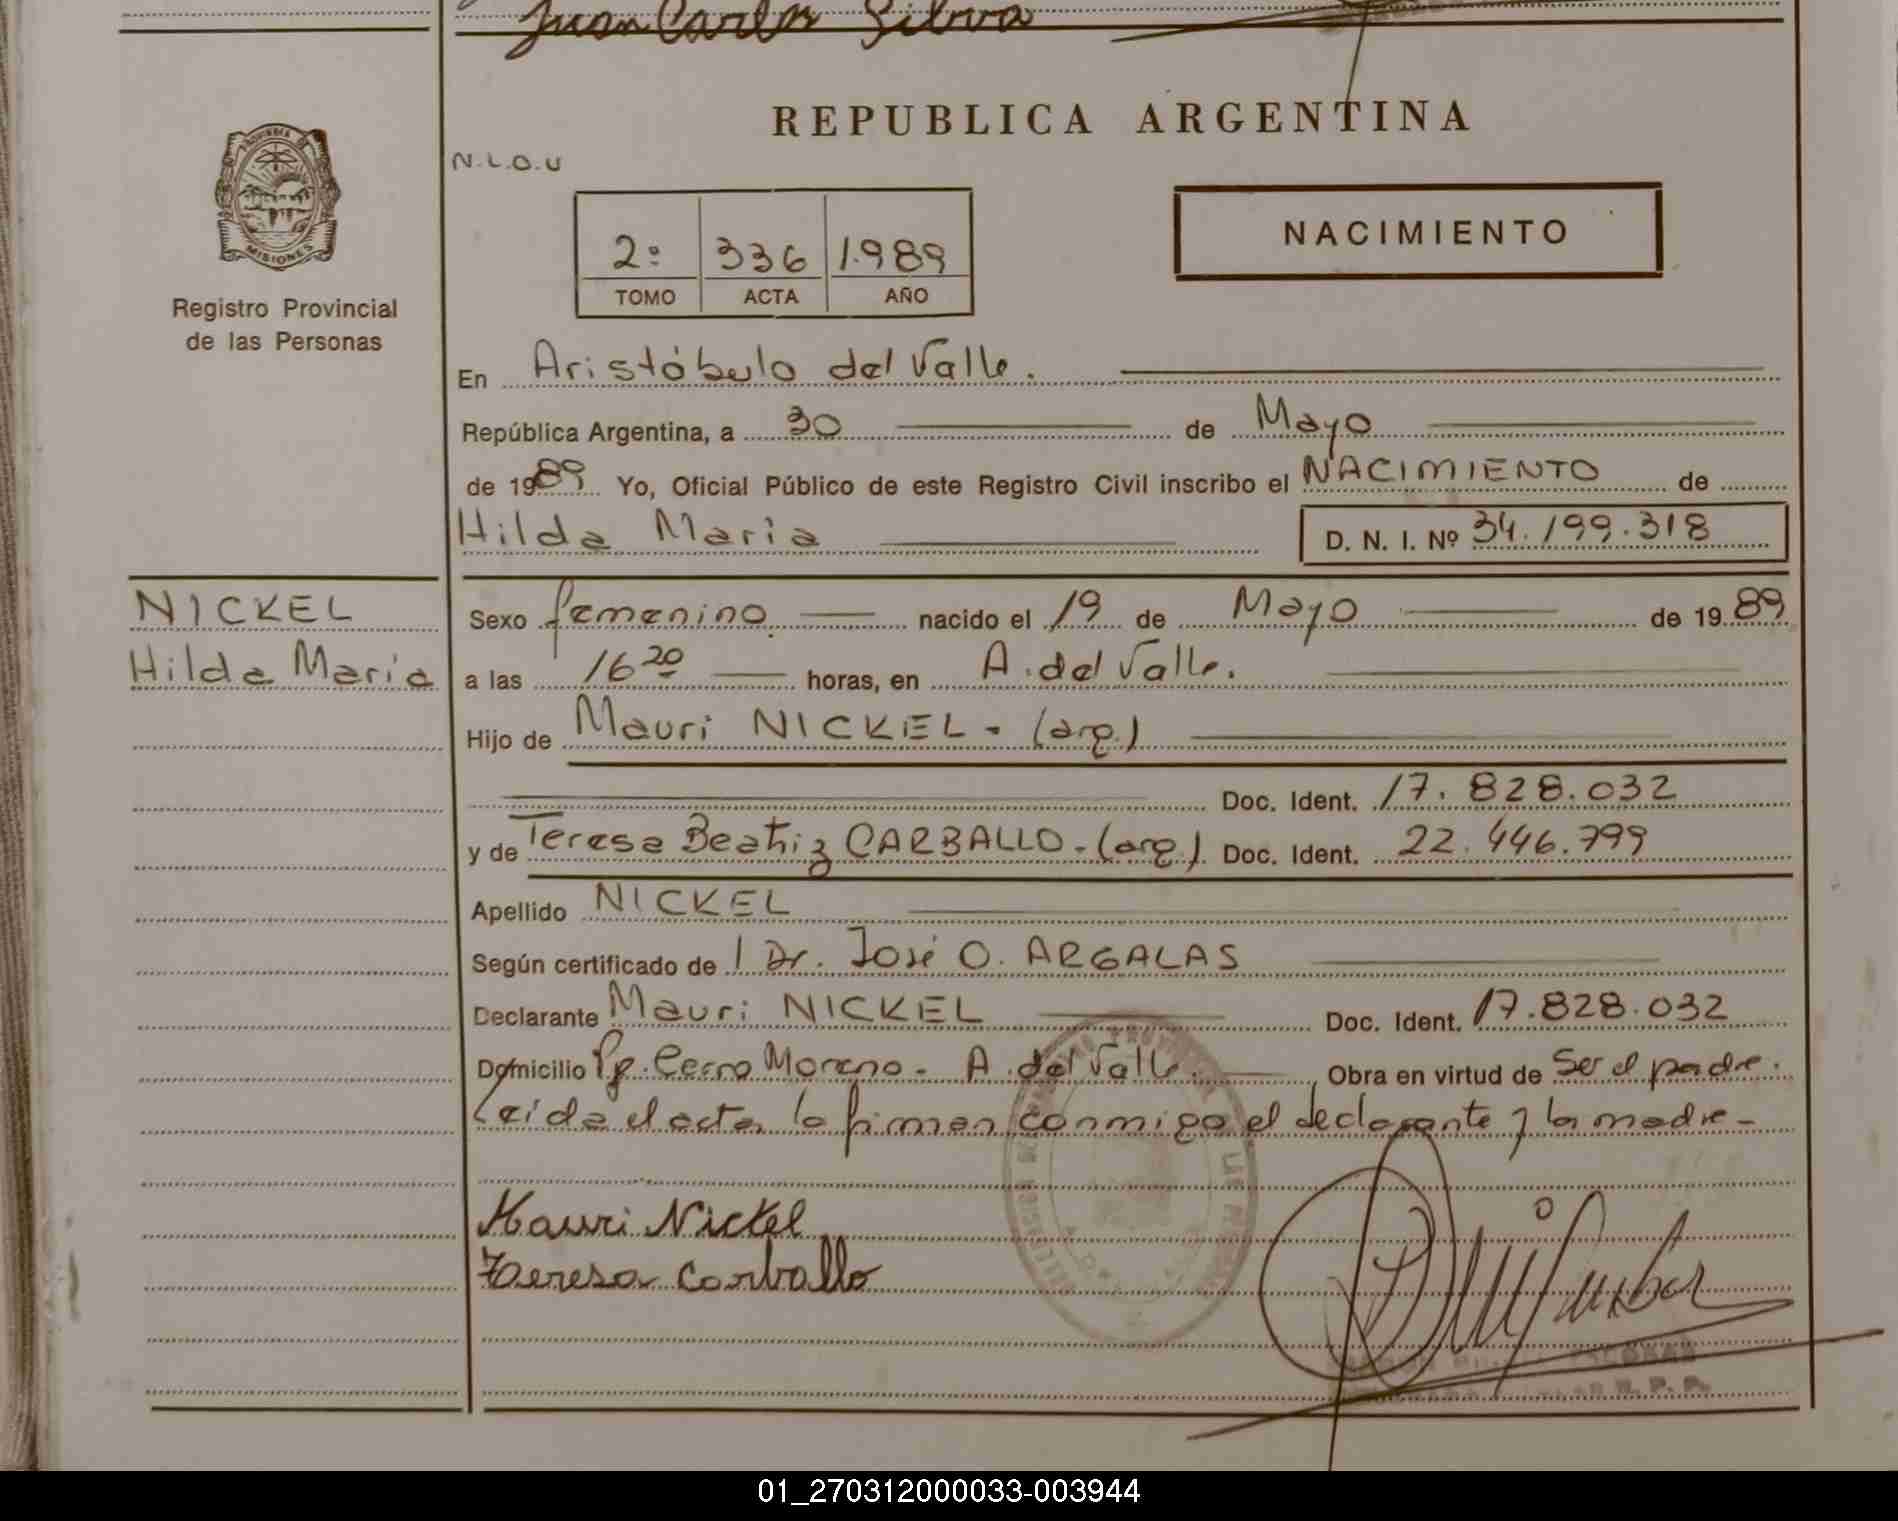 Juan Carlos Silva
REPUBLICA ARGENTINA
PROVINCIA DE
MISIONES
Registro Provincial
de las Personas
N.L.O.U
2º 336 1.989
TOMO ACTA AÑO
NACIMIENTO
En Aristóbulo del Valle.
República Argentina, a 30 de Mayo
de 1989 Yo, Oficial Público de este Registro Civil inscribo el NACIMIENTO de
Hilda Maria D. N. I. Nº 34.199.318
NICKEL
Hilda Maria
Sexo femenino nacido el 19 de Mayo de 1989
a las 16 20 horas, en A. del Valle.
Hijo de Mauri NICKEL - (arg.)
Doc. Ident. 17.828.032
y de Teresa Beatriz CARBALLO - (arg.) Doc. Ident. 22.446.799
Apellido NICKEL
Según certificado de l Dr. José O. ARGALAS
Declarante Mauri NICKEL Doc. Ident. 17.828.032
Domicilio Pje. Cerro Moreno - A. del Valle. , Obra en virtud de Ser el padre.
Leida el acta la firman conmigo el declarante y la madre -
Mauri Nickel
Teresa Carballo
01_270312000033-003944